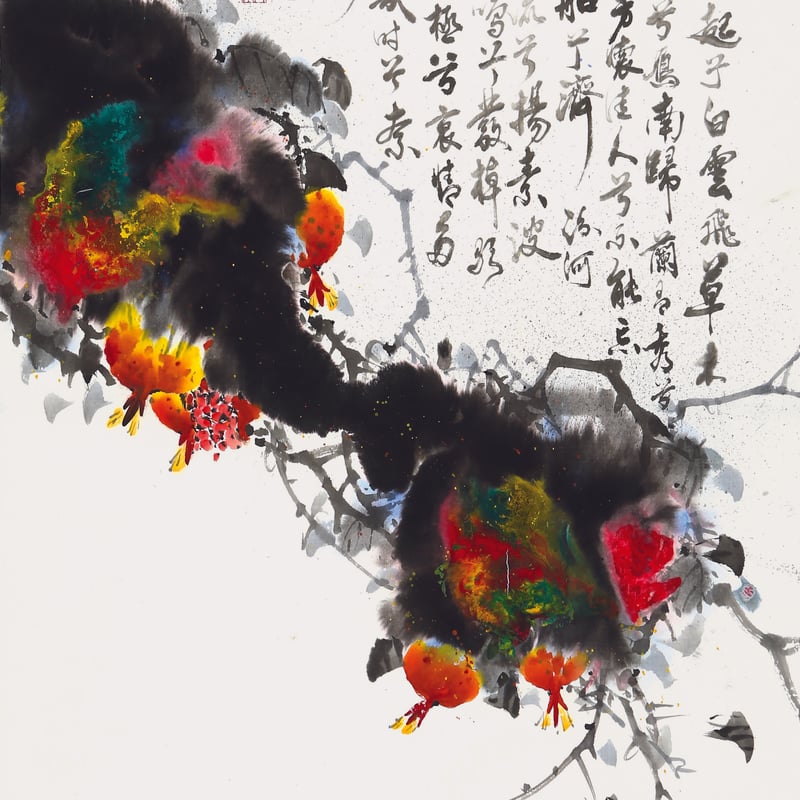 起兮白雲飛草木
兮鴈南歸蘭有秀兮
芳懷佳人兮不能忘
船兮濟汾河
流兮揚素波
鳴兮發棹歌
極兮哀情多
時兮奈